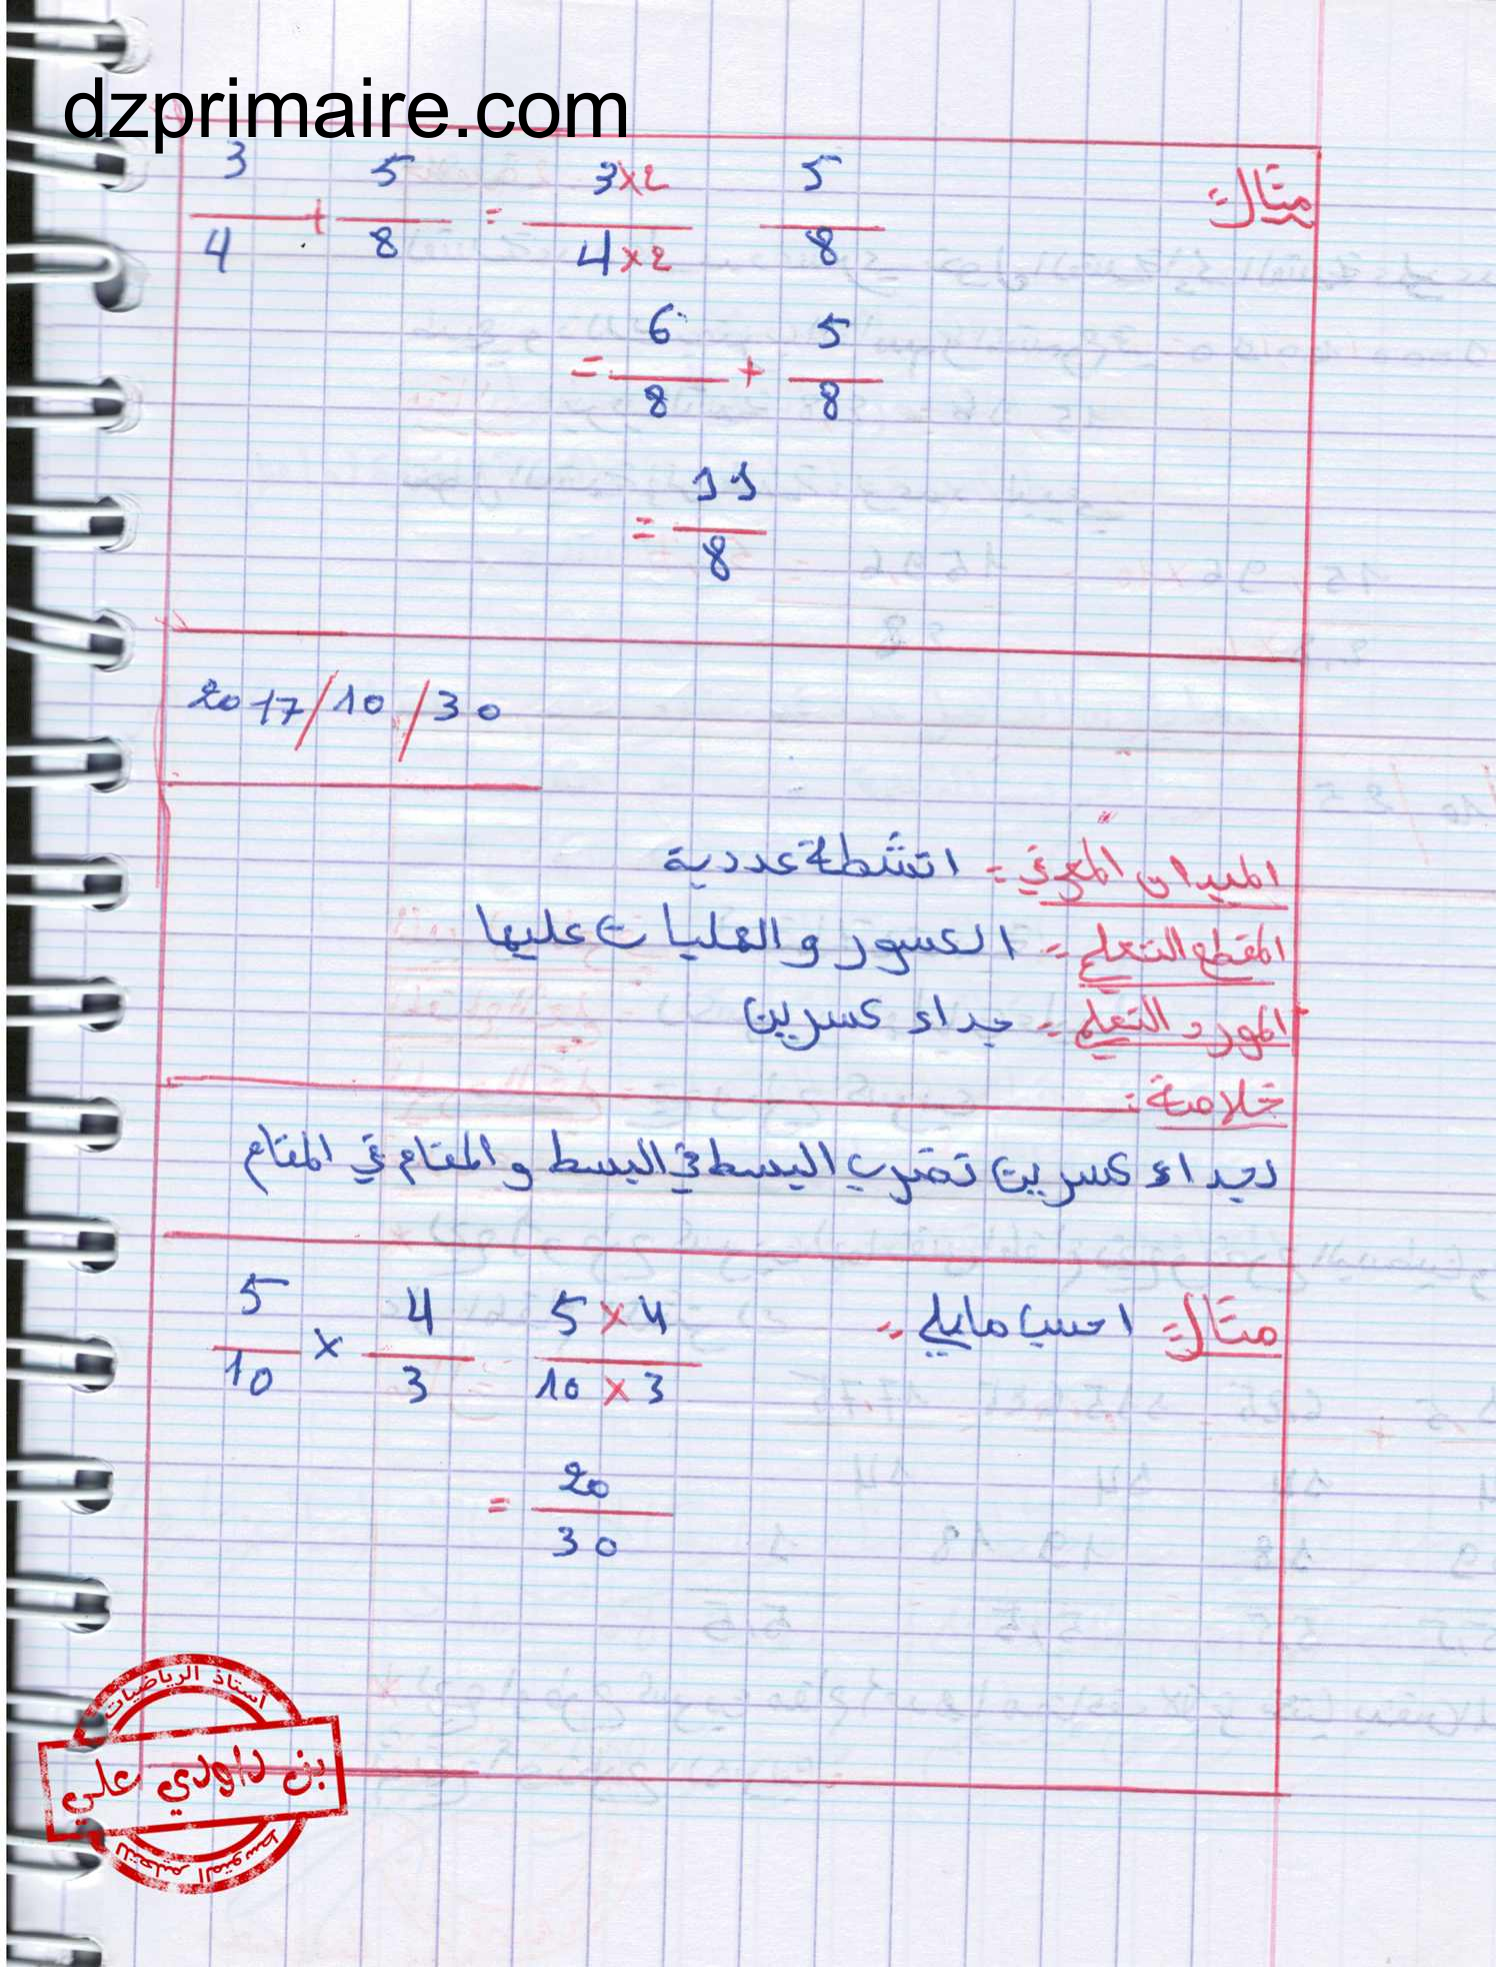 dzprimaire.com
مثال:
3/4 + 5/8 = 3×2/4×2 5/8
= 6/8 + 5/8
= 11/8
2017/10/30
الميدان المعرفي: انشطة عددية
المقطع التعلمي: الكسور والعمليات عليها
المورد التعلمي: جداء كسرين
خلاصة:
لجداء كسرين نضرب البسط في البسط و المقام في المقام
مثال: احسب مايلي:
5/10 × 4/3 5×4/10×3
= 20/30
أستاذ الرياضيات
بن داودي علي
للتعليم المتوسط